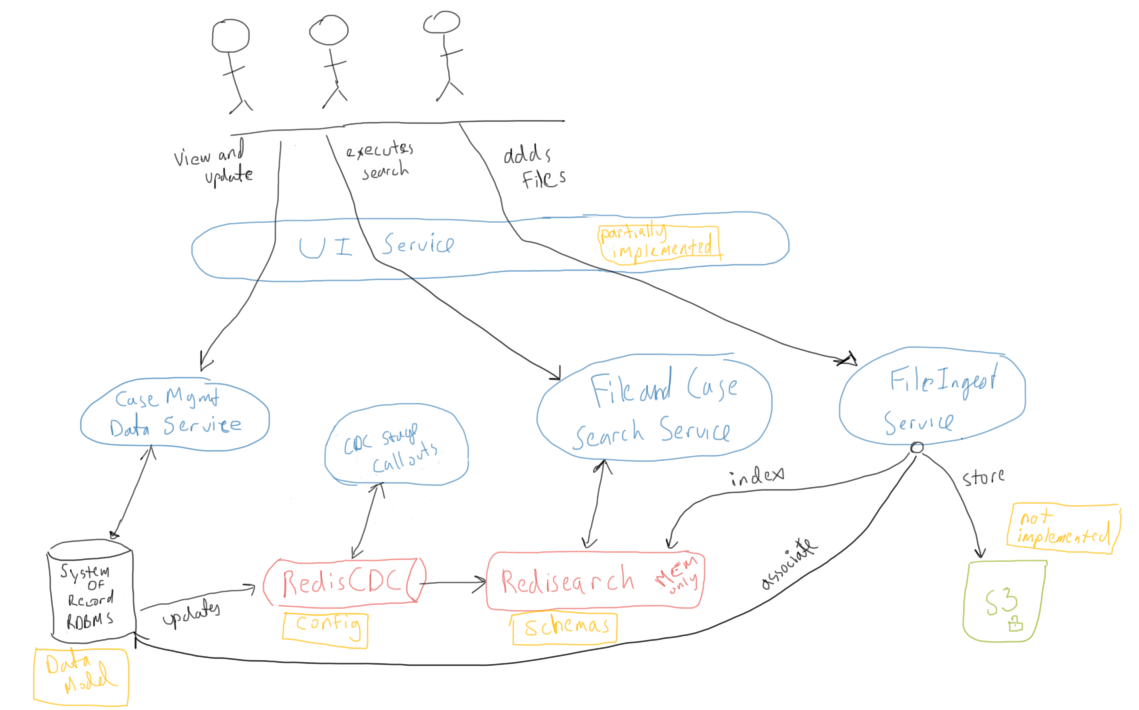 View and
update
executes
search
adds
Files
UI Service
partially
implemented
Case Mgmt
Data Service
CDC Stage
Callouts
File and Case
Search Service
File Ingest
Service
index
store
not
implemented
System
OF
Record
RDBMS
updates
RedisCDC
Redisearch
MEM
only
associate
S3
config
Schemas
Data
Model